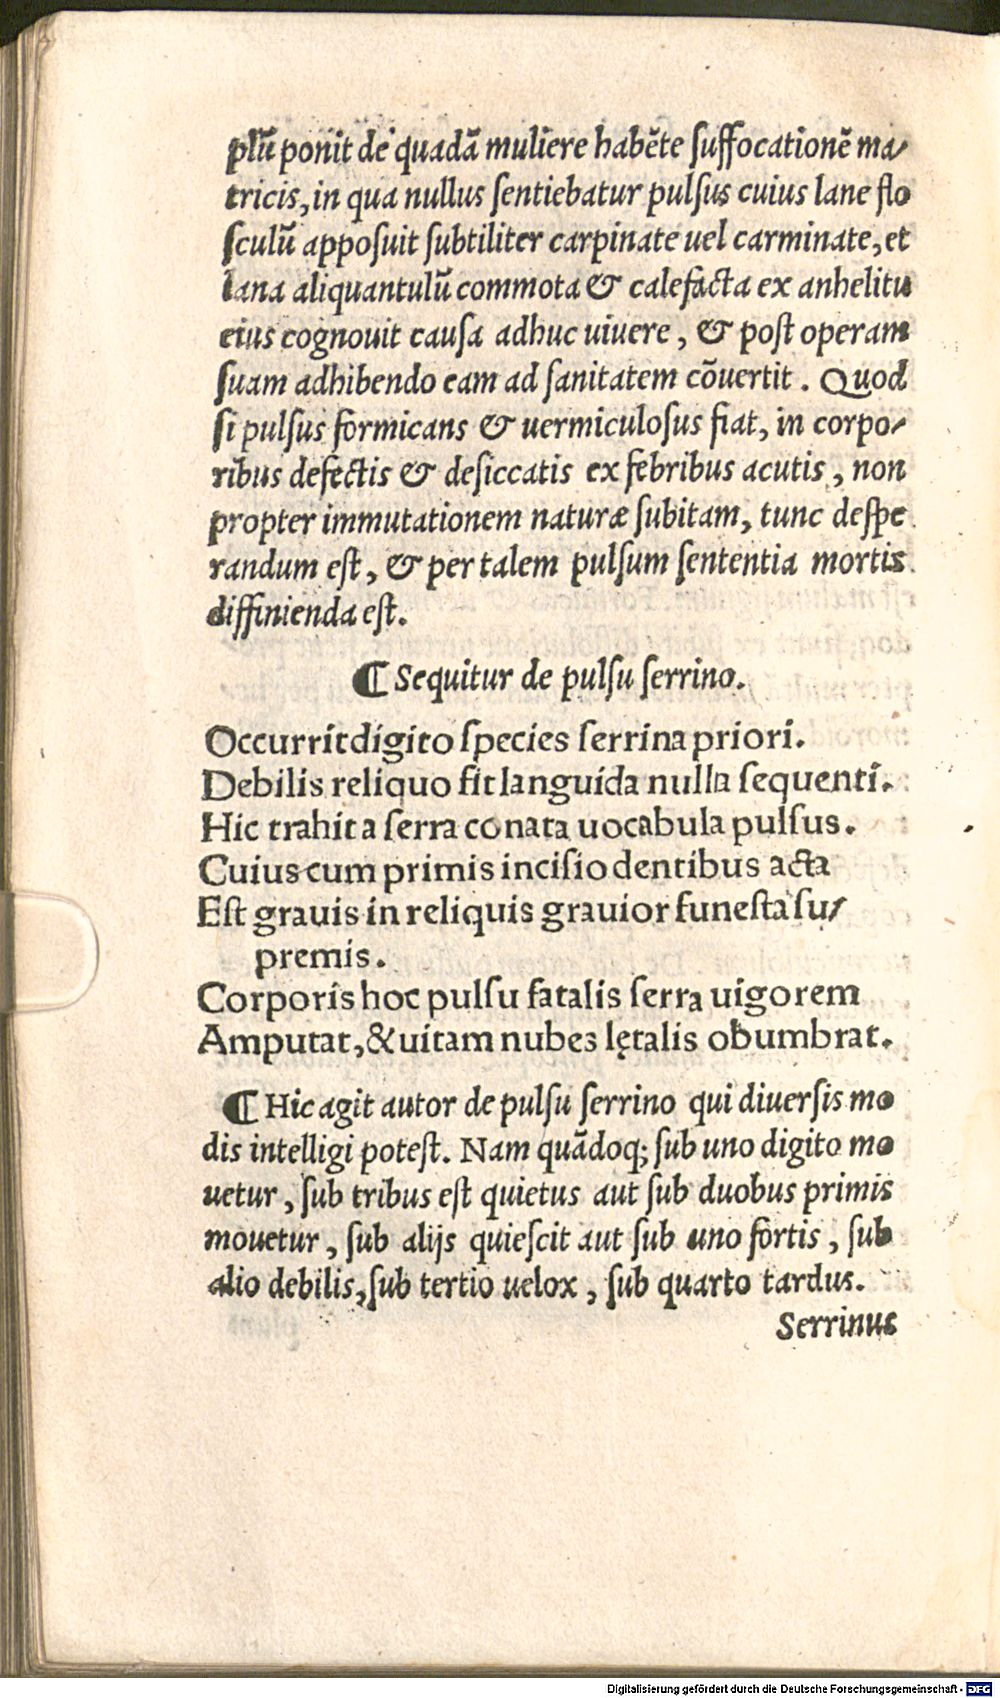 plū ponit de quadā muliere habēte ſuffocationē ma⸗
tricis, in qua nullus ſentiebatur pulſus cuius lane flo
ſculū appoſuit ſubtiliter carpinate uel carminate, et
lana aliquantulū commota & calefacta ex anhelitu
eius cognouit cauſa adhuc uiuere, & poſt operam
ſuam adhibendo eam ad ſanitatem cōuertit. Quod
ſi pulſus formicans & uermiculoſus fiat, in corpo⸗
ribus defectis & deſiccatis ex febribus acutis, non
propter immutationem naturæ ſubitam, tunc deſpe
randum eſt, & per talem pulſum ſententia mortis
diffinienda eſt.
¶ Sequitur de pulſu ſerrino.
Occurrit digito ſpecies ſerrina priori.
Debilis reliquo fit languida nulla ſequenti.
Hic trahit a ſerra conata uocabula pulſus.
Cuius cum primis inciſio dentibus acta
Eſt grauis in reliquis grauior funeſta ſu⸗
premis.
Corporis hoc pulſu fatalis ſerra uigorem
Amputat, & uitam nubes lętalis obumbrat.
¶ Hic agit autor de pulſu ſerrino qui diuerſis mo
dis intelligi poteſt. Nam quādoq; ſub uno digito mo
uetur, ſub tribus eſt quietus aut ſub duobus primis
mouetur, ſub alijs quieſcit aut ſub uno fortis, ſub
alio debilis, ſub tertio uelox, ſub quarto tardus.
Serrinus
Digitalisierung gefördert durch die Deutsche Forschungsgemeinschaft - DFG